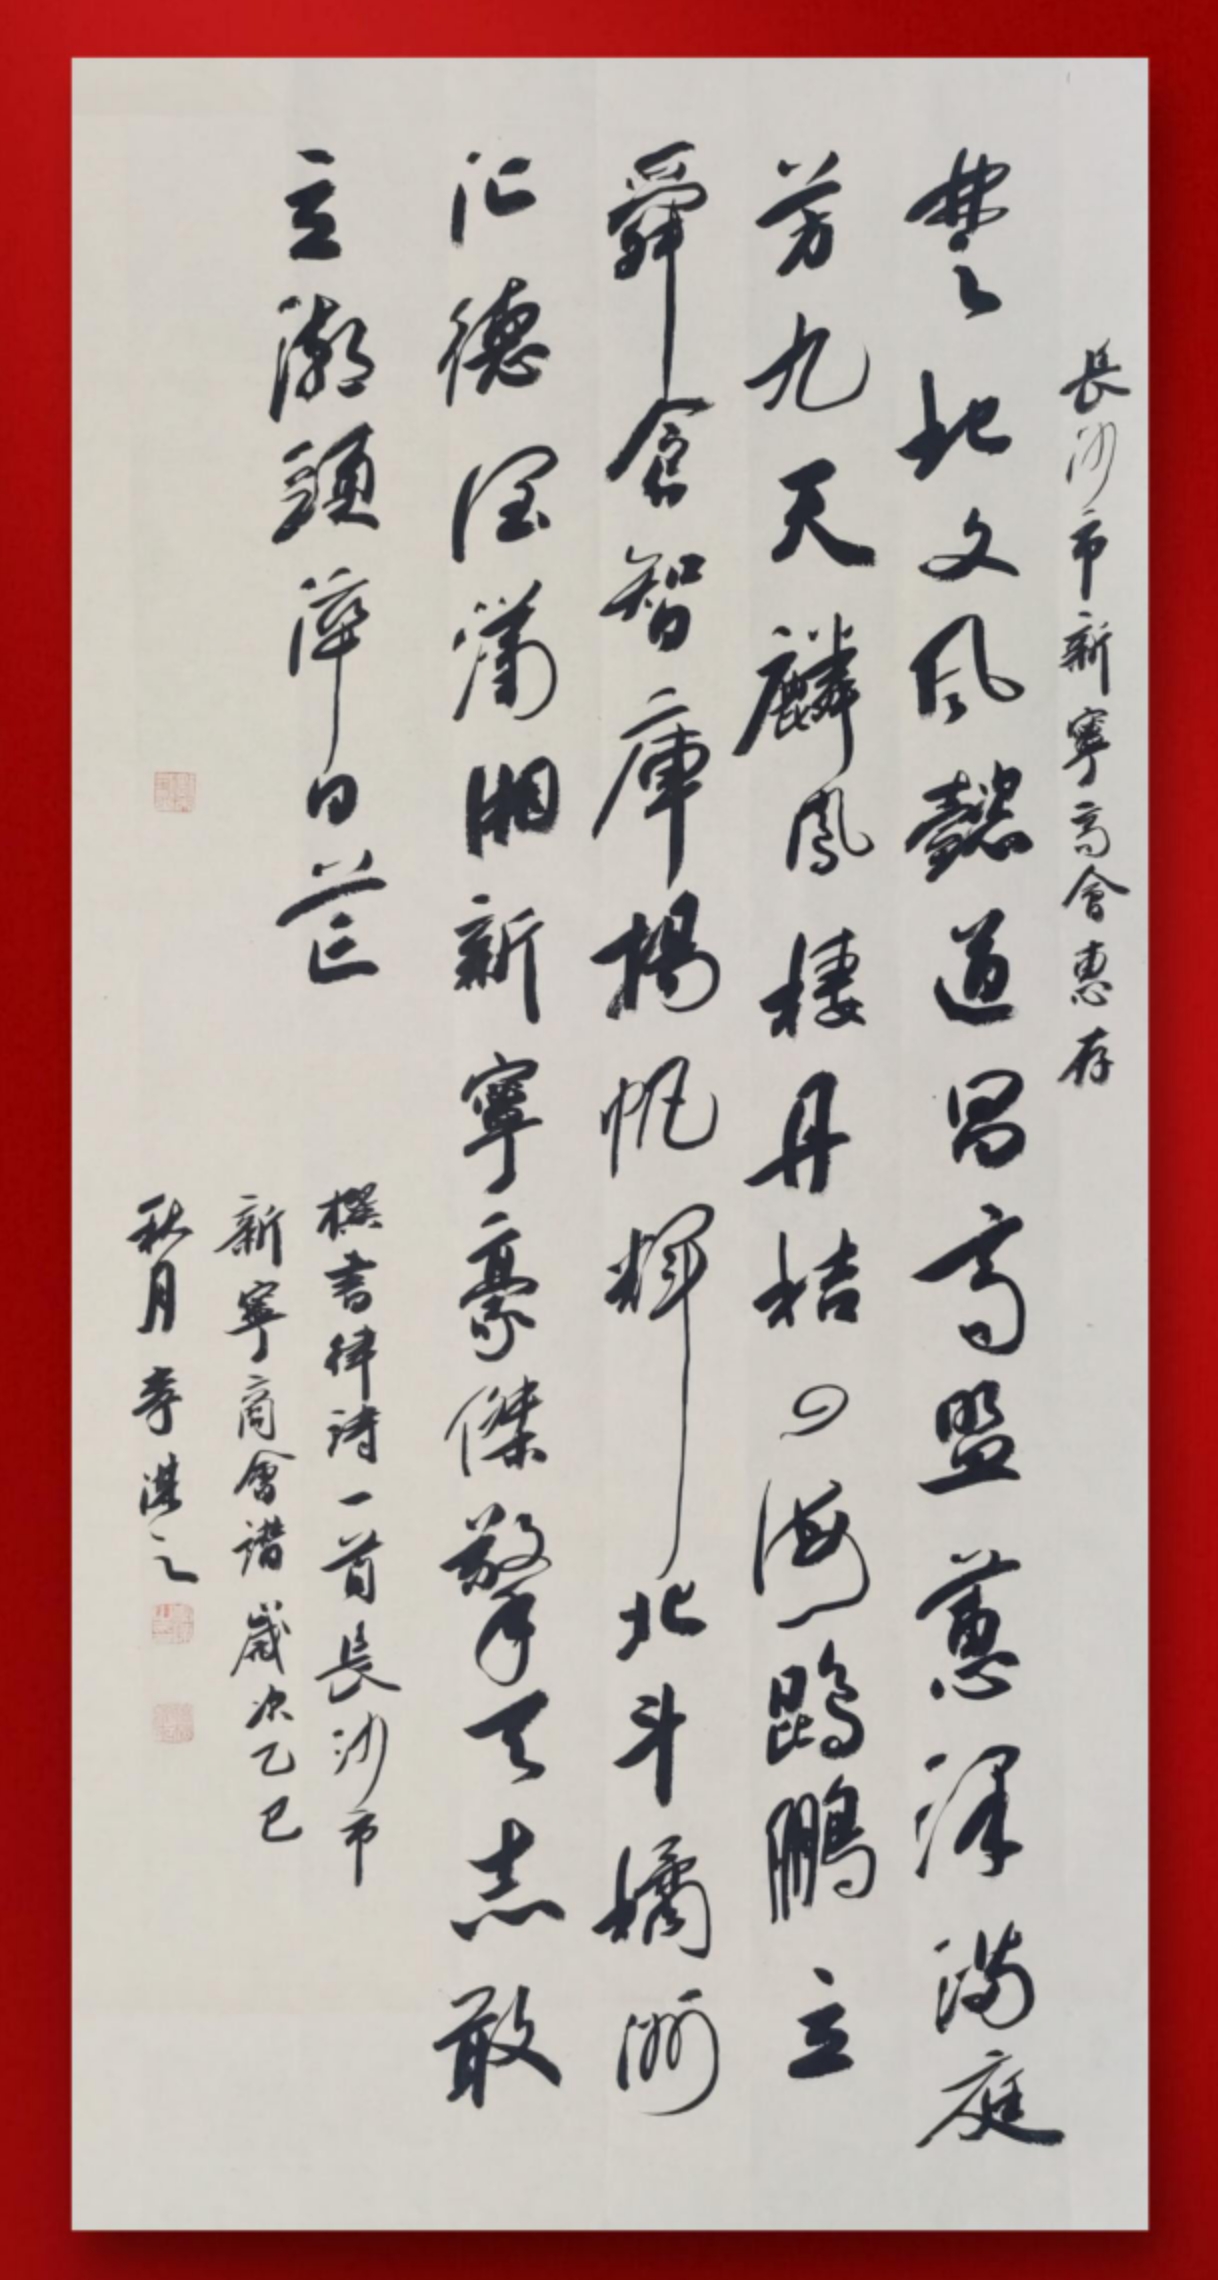 長沙市新寧商會惠存
楚地文風懿道昌商盟蕙澤滿庭
芳九天麟鳳棲丹桔四海鵾鵬立
舜倉智庫揚帆輝北斗橘洲
汇德澤瀟湘新寧豪傑擎天志敢
立潮頭萍日芒
撰書律詩一首長沙市
新寧商會譜歲次乙巳
秋月李湛之